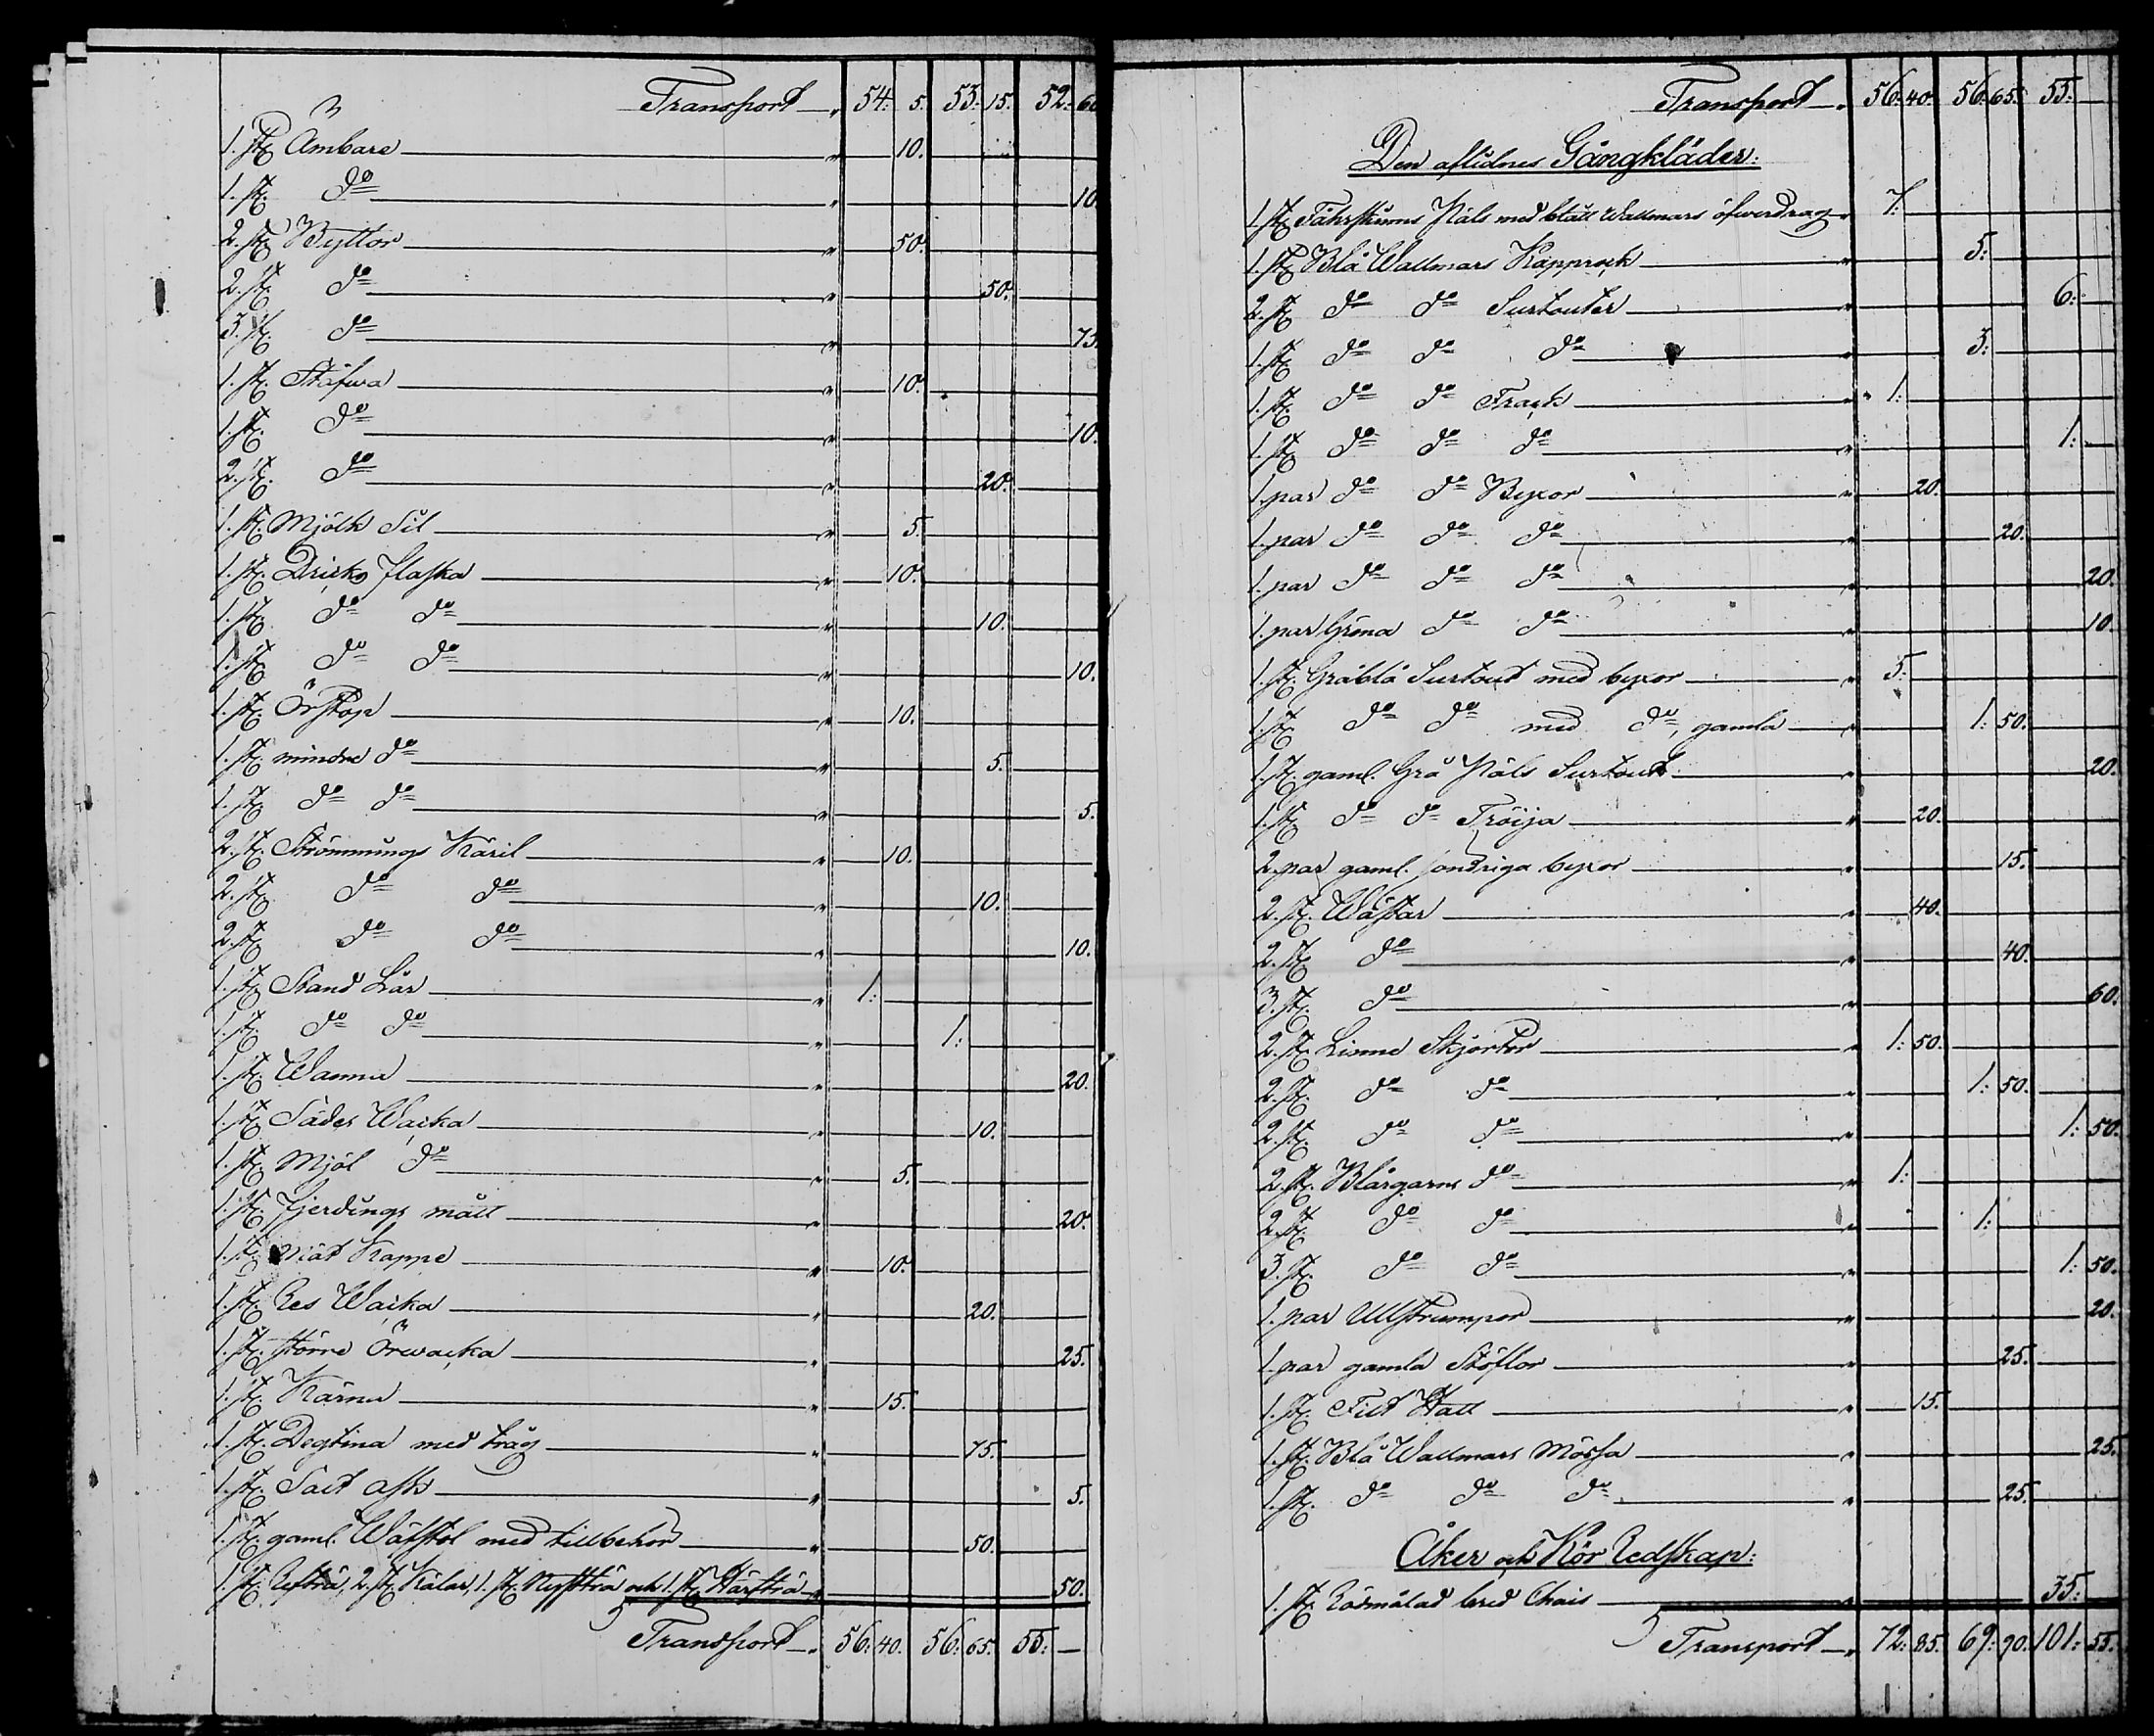 Transport 54: 5. 53: 15. 52: 60
1. st. Ämbare 10.
1. st. do 10.
2. st. Byttor 50.
2. st. do 50.
3. st. do 75.
1. st. Stäfwa 10.
1. st. do 10.
2. st. do 20.
1. st. Mjölk Sil 5.
1. st. Dricks flaska 10.
1. st. do do 10.
1. st. do do 10.
1. st. Örstop 10.
1. st. mindre do 5.
1. st. do do 5.
2. st. Strömmings Käril 10.
2. st. do do 10.
2. st. do do 10.
1. st. Stand Lår 1:
1. st. do do 1:
1. st. Wanna 20.
1. st. Sädes Wacka 10.
1. st. Mjöl do 5.
1. st. Fjerdings mått 20.
1. st. Kappe 10.
1. st. Res Wacka 20.
1. st. större Örwacka 25.
1. st. Kärna 15.
1. st. Degtina med tråg 75.
1. st. Salt ask 5.
1. st. gaml. Wäfstol med tillbehör 50.
1. st. 2. st. 1. st. och 1. st. 50.
Transport 56: 40. 56: 65. 55: —
Transport 56: 40. 56: 65. 55: —
Den aflidnes Gångkläder:
1. st. Fåhrskinns Päls med blått Wallmars öfwerdrag 7:
1. st. Blå Wallmars Kapprock 5:
2. st. do do Surtouter 6:
1. st. do do do 3:
1. st. do do Frack 1:
1. st. do do do 1:
1. par do do Byxor 20.
1. par do do do 20.
1. par do do do 20.
1. par Gröna do do 10.
1. st. Gråblå Surtout med byxor 5:
1. st. do do med do, gamla 1: 50.
1. st. gaml. Grå Päls Surtout 20.
1. st. do do Tröija 20.
2. par gaml. sondriga byxor 15.
2. st. Wästar 40.
2. st. do 40.
3. st. do 60.
2. st. Linne Skjortor 1: 50.
2. st. do do 1: 50.
2. st. do do 1: 50.
2. st. Blårgarns do 1:
2. st. do do 1:
3. st. do do 1: 50.
1. par Ullstrumpor 20.
1. par gamla Stöflor 25.
1. st. Filt Hatt 15.
1. st. Blå Wallmars Mössa 25.
1. st. do do do 25.
Åker och Kör Redskap:
1. st. Rödmålad bred Chais 35:
Transport 72: 85. 69: 90. 101: 55.